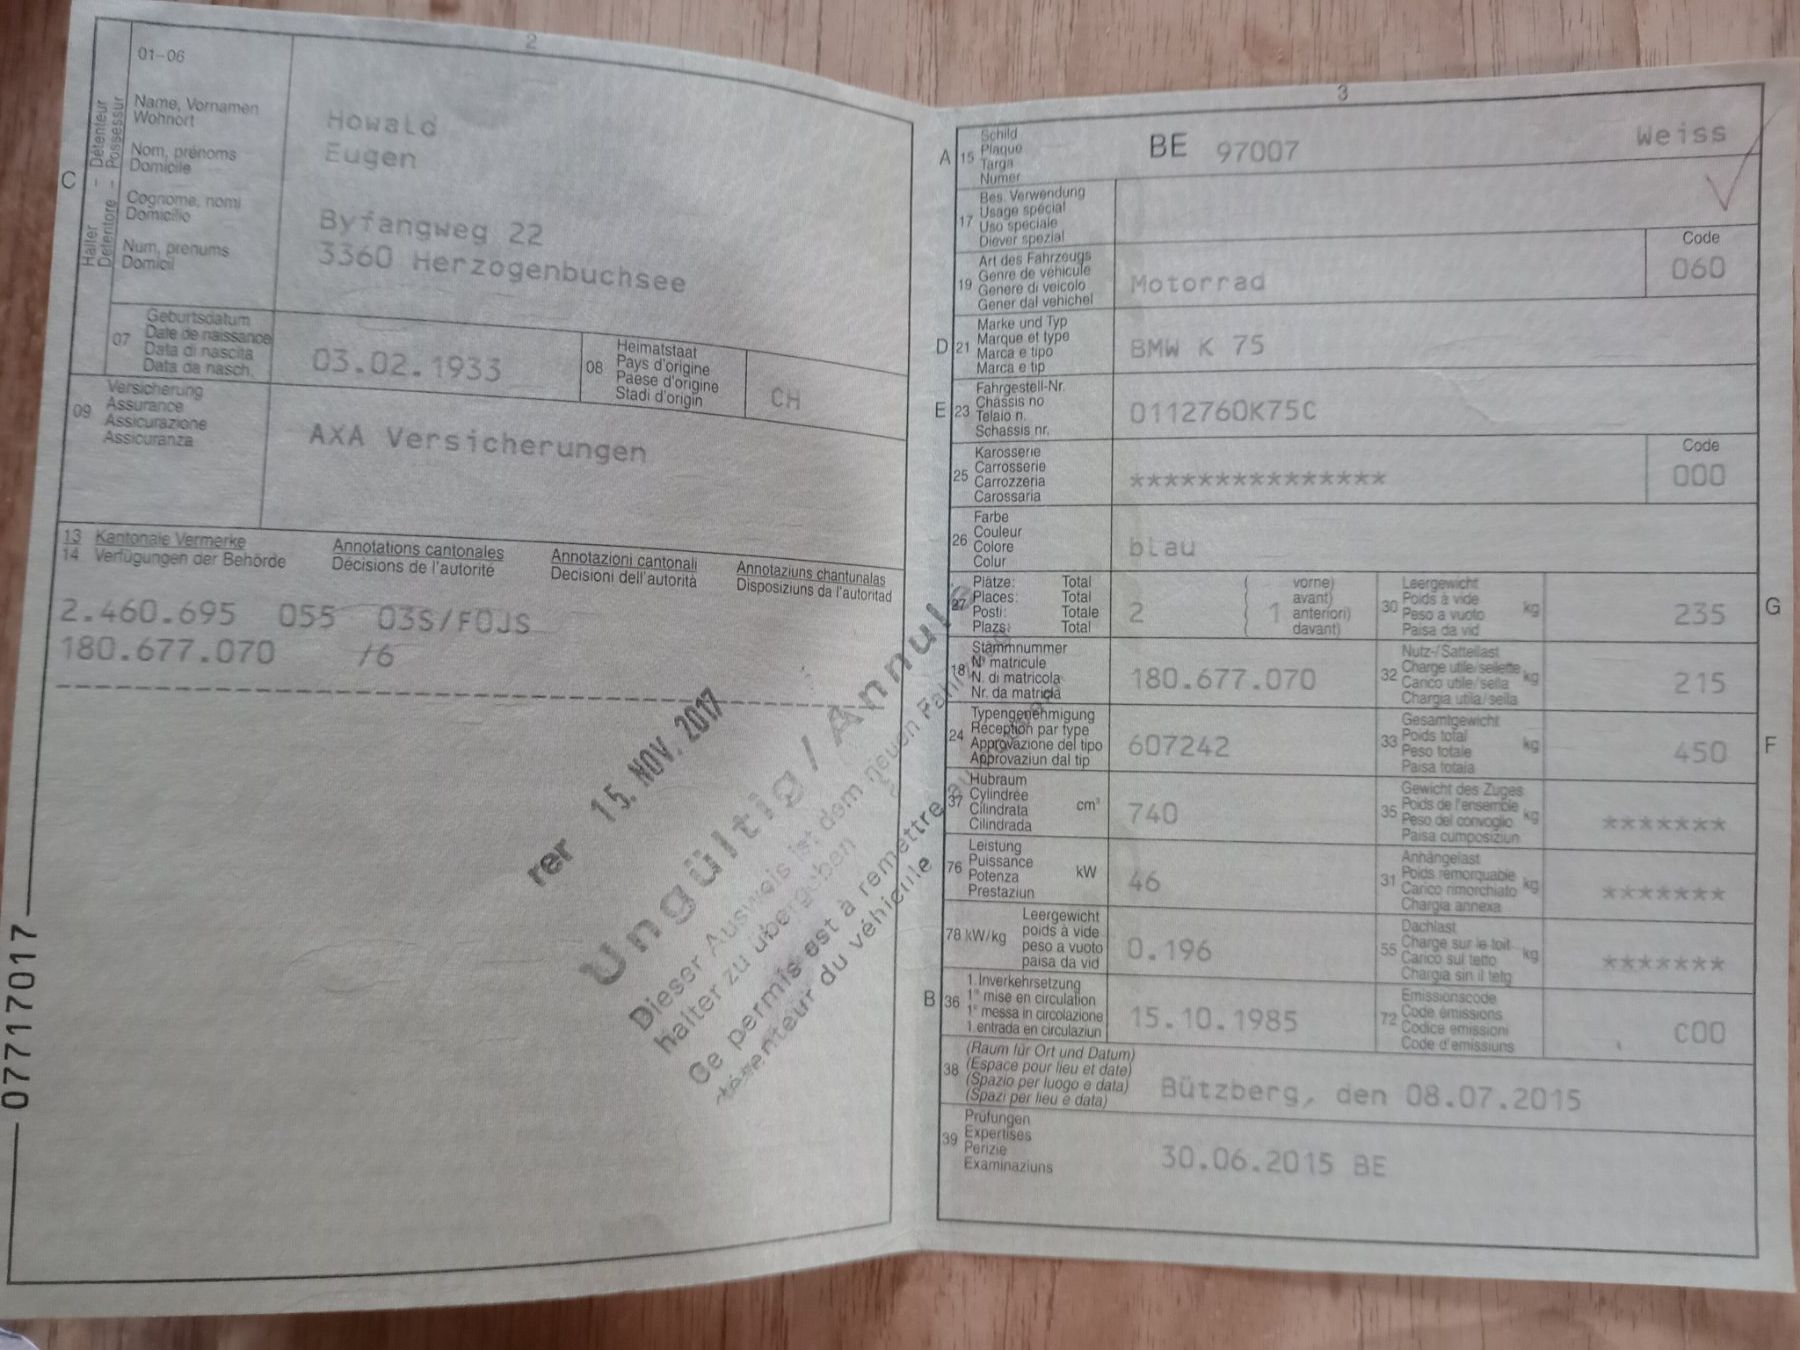 2
01-06
C
Halter - Détenteur
Detentore - Possessur
Name, Vornamen
Wohnort
Nom, prénoms
Domicile
Cognome, nomi
Domicilio
Num, prenums
Domicil
Howald
Eugen
Byfangweg 22
3360 Herzogenbuchsee
07
Geburtsdatum
Date de naissance
Data di nascita
Data da nasch.
03.02.1933
08
Heimatstaat
Pays d'origine
Paese d'origine
Stadi d'origin
CH
09
Versicherung
Assurance
Assicurazione
Assicuranza
AXA Versicherungen
13 Kantonale Vermerke
14 Verfügungen der Behörde
Annotations cantonales
Décisions de l'autorité
Annotazioni cantonali
Decisioni dell'autorità
Annotaziuns chantunalas
Disposiziuns da l'autoritad
2.460.695 055 03S/FOJS
180.677.070 /6
rer 15. NOV. 2017
Ungültig / Annulé
Dieser Ausweis ist dem neuen Fahrzeug-
halter zu übergeben
Ce permis est à remettre au nouveau
détenteur du véhicule
07717017
3
A 15
Schild
Plaque
Targa
Numer
BE 97007 Weiss
17
Bes. Verwendung
Usage spécial
Uso speciale
Diever spezial
19
Art des Fahrzeugs
Genre de véhicule
Genere di veicolo
Gener dal vehichel
Motorrad
Code
060
D 21
Marke und Typ
Marque et type
Marca e tipo
Marca e tip
BMW K 75
E 23
Fahrgestell-Nr.
Châssis no
Telaio n.
Schassis nr.
0112760K75C
25
Karosserie
Carrosserie
Carrozzeria
Carossaria
***************
Code
000
26
Farbe
Couleur
Colore
Colur
blau
27
Plätze: Total
Places: Total
Posti: Totale
Plazs: Total
2
( vorne)
avant)
1 anteriori)
( davant)
30
Leergewicht
Poids à vide
Peso a vuoto
Paisa da vid
kg
235
G
18
Stammnummer
N° matricule
N. di matricola
Nr. da matricla
180.677.070
32
Nutz-/Sattellast
Charge utile/sellette
Carico utile/sella
Chargia utila/sella
kg
215
24
Typengenehmigung
Réception par type
Approvazione del tipo
Approvaziun dal tip
607242
33
Gesamtgewicht
Poids total
Peso totale
Paisa totala
kg
450
F
37
Hubraum
Cylindrée
Cilindrata
Cilindrada
cm³
740
35
Gewicht des Zuges
Poids de l'ensemble
Peso del convoglio
Paisa cumposiziun
kg
*******
76
Leistung
Puissance
Potenza
Prestaziun
kW
46
31
Anhängelast
Poids remorquable
Carico rimorchiato
Chargia annexa
kg
*******
78 kW/kg
Leergewicht
poids à vide
peso a vuoto
paisa da vid
0.196
55
Dachlast
Charge sur le toit
Carico sul tetto
Chargia sin il tetg
kg
*******
B 36
1. Inverkehrsetzung
1re mise en circulation
1a messa in circolazione
1. entrada en circulaziun
15.10.1985
72
Emissionscode
Code émissions
Codice emissioni
Code d'emissiuns
C00
38
(Raum für Ort und Datum)
(Espace pour lieu et date)
(Spazio per luogo e data)
(Spazi per lieu e data)
Bützberg, den 08.07.2015
39
Prüfungen
Expertises
Perizie
Examinaziuns
30.06.2015 BE